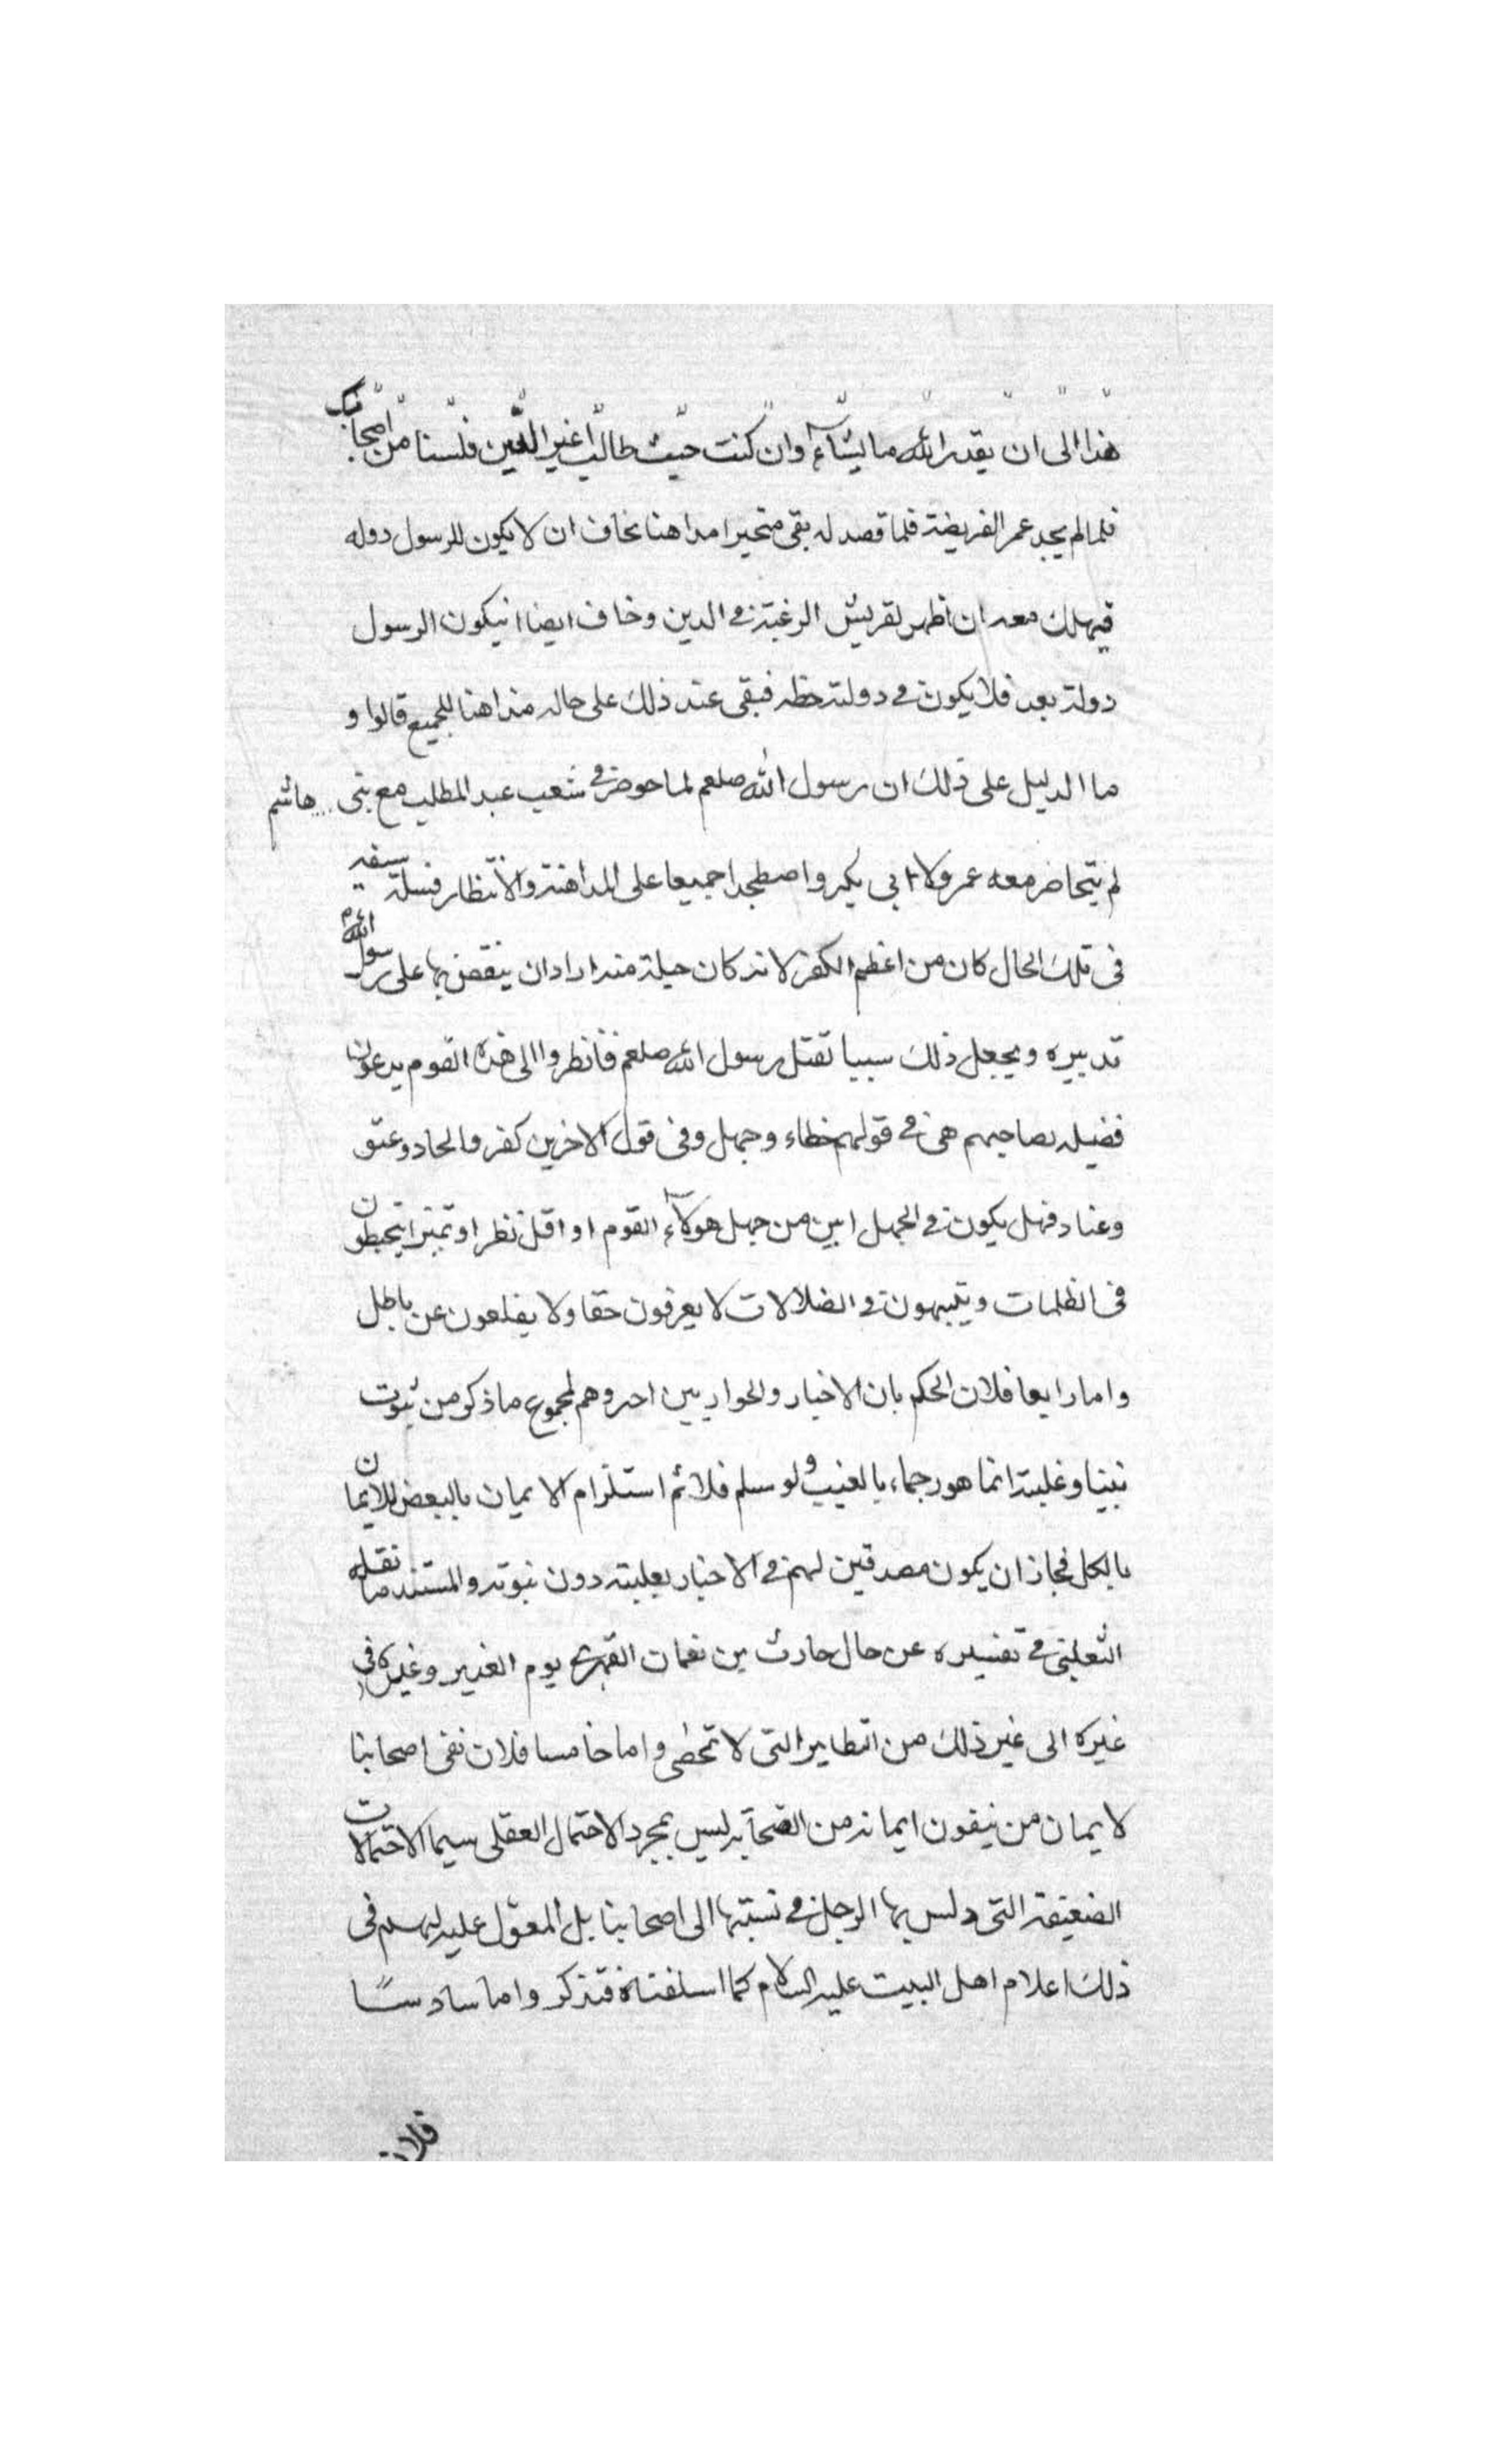 هذا الى ان يقدر الله ما يشاء وان كنت جيت طالبا غير الدين فلسنا من اصحابك
فلما لم يجد عمر الفريضة فلما قصد له بقى متحيرا مداهنا نخاف ان لا يكون للرسول دوله
فيهلك معه ان اظهر لقريش الرغبة في الدين وخاف ايضا انيكون الرسول
دولة بعد فلا يكون في دولته حظه فبقى عند ذلك على حاله مداهنا للجميع قالوا و
ما الدليل على ذلك ان رسول الله صلعم لما حوضر في شعب عبد المطلب مع بنى هاشم
لم يتحاضر معه عمر ولا ابى بكر واصطجدا جميعا على المداهنة والانتظار فسلة سيفه
فى تلك الحال كان من اعظم الكفر لانه كان حيلة منه اراد ان ينقض بها على رسول الله
تدبيره ويجعل ذلك سببا تقتل رسول الله صلعم فانظروا الى هذه القوم يدعون
فضيله بصاحبهم هى في قولهم خطاء وجهل وفى قول الاخرين كفر والحاد وعتق
وعناد فهل يكون في الجهل ابين من جهل هولاء القوم او اقل نظرا وتميزا يتخبطون
فى الظلمات ويتيهون في الضلالات لا يعرفون حقا ولا يقلعون عن باطل
واما رابعا فلان الحكم بان الاخبار والحواريين احروهم لمجموع ما ذكر من ثبوت
نبينا وغلبته انما هو رجماء بالغيب ولو سلم فلا ثم استلزام الايمان بالبعض للايمان
بالكل فجاز ان يكون مصدقين لهم في الاخبار بغلبته دون نبوته والمستند ما نقله
الثعلبى في تفسيره عن حال حارث بن نعمان الفهرى يوم الغدير وغيره فى
غيره الى غير ذلك من النظاير التى لا تحصى واما خامسا فلان نفى اصحابنا
لايمان من نيفون ايمانه من الصحابة ليس بمجرد الاحتمال العقلى سيما الاحتمالات
الضعيفة التى دلس بها الرجل في نسبتها الى اصحابنا بل المعول عليه لهم فى
ذلك اعلام اهل البيت عليه السلام كما اسلفناه فتذكر واما سادسًا
فلان